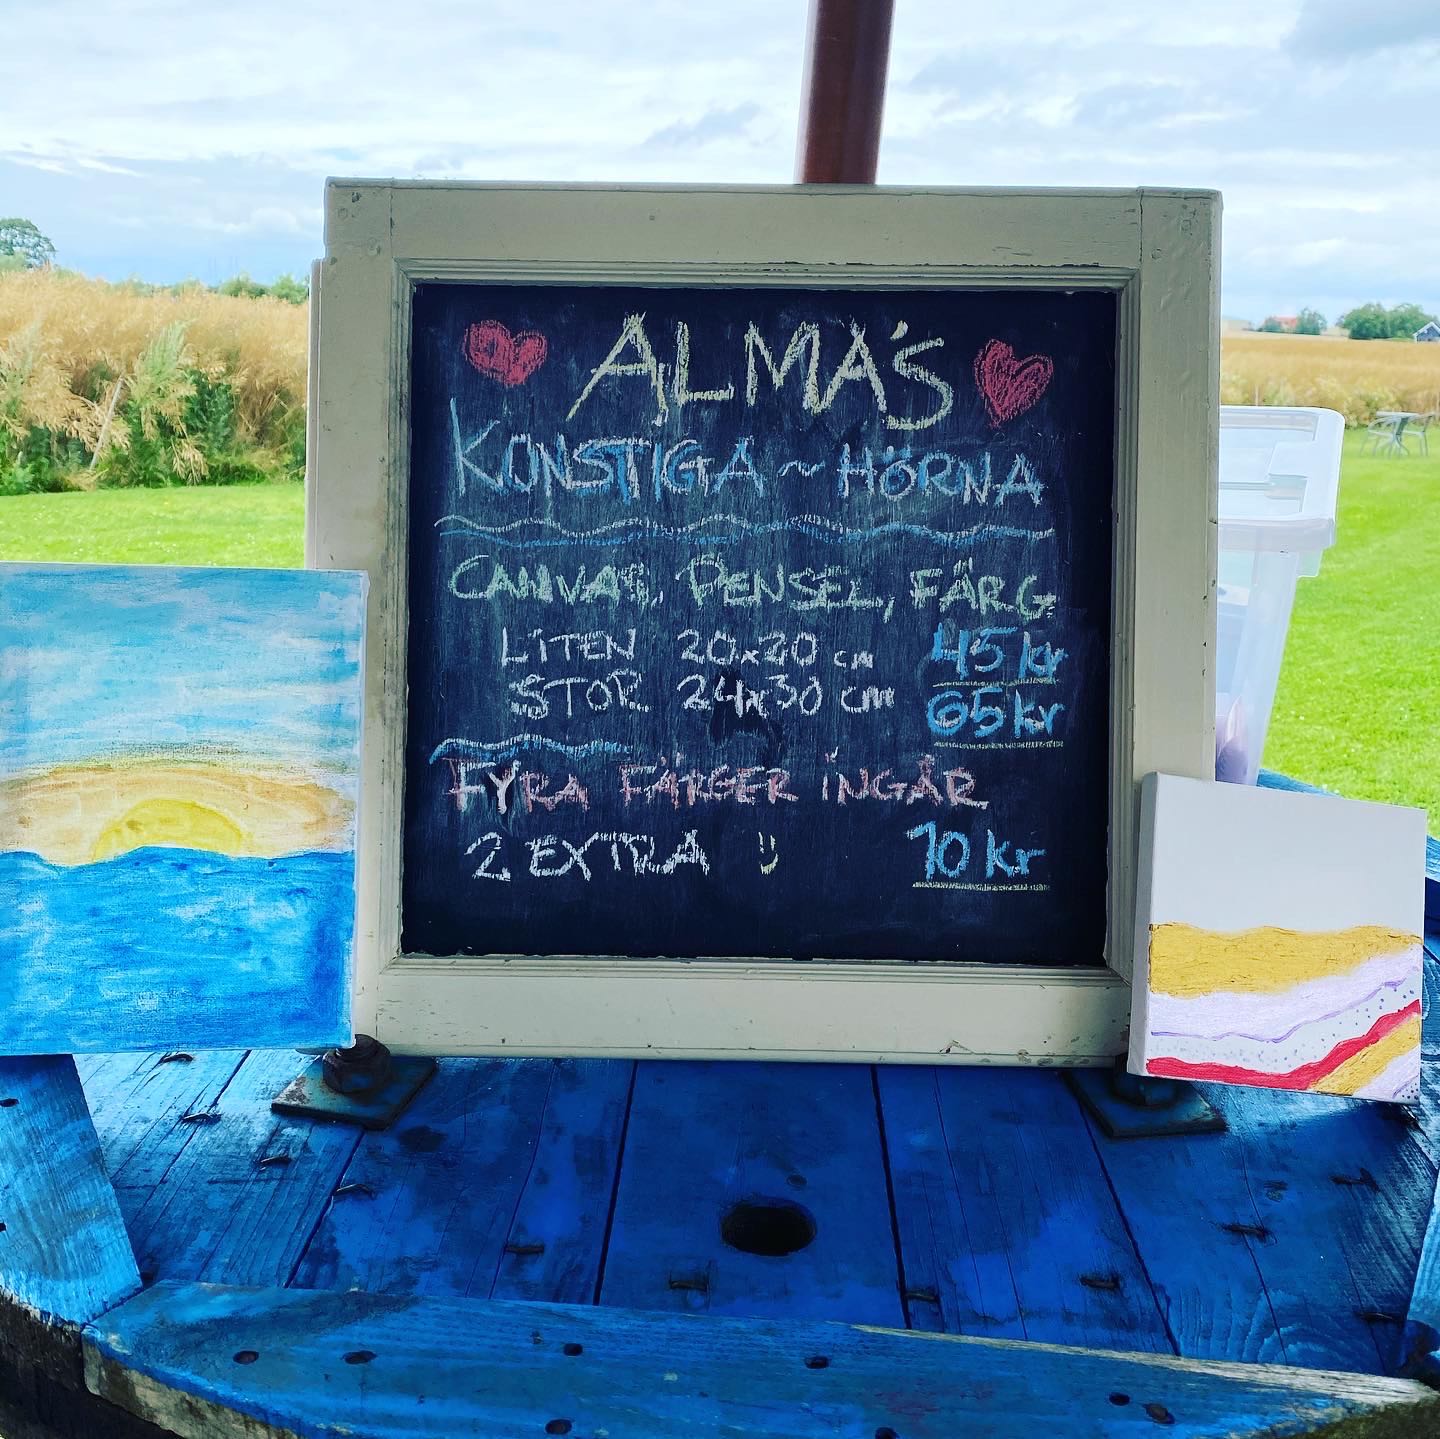 ALMA'S
KONSTIGA ~ HÖRNA
CANVAS, PENSEL, FÄRG
LITEN 20x20 cm 45 kr
STOR 24x30 cm 65 kr
FYRA FÄRGER INGÅR
2 EXTRA :) 10 kr